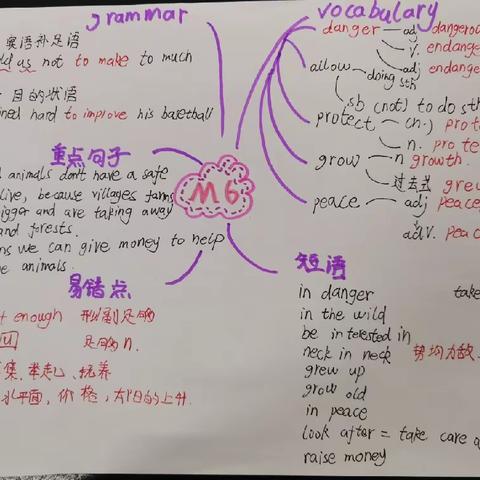 grammar
宾语补足语
us not to make to much
目的状语
ined hard to improve his basetball
重点句子
animals don't have a safe
live, because villages farms
igger and are taking away
and forests.
ns we can give money to help
e animals.
易错点
t enough 形/副足够
足够n.
集、举起、培养
水平面，价格，太阳的上升.
M6
vocabulary
danger adj dangerou
v. endange
adj endange
allow doing sth
sb (not) to do sth
protect (n.) pro te
n. pro te
grow n growth.
过去式 grew
peace adj peace
adv. peac
短语
in danger take
in the wild
be in terested in
neck in neck 势均力敌
grew up
grow old
in peace
look after = take care o
raise money